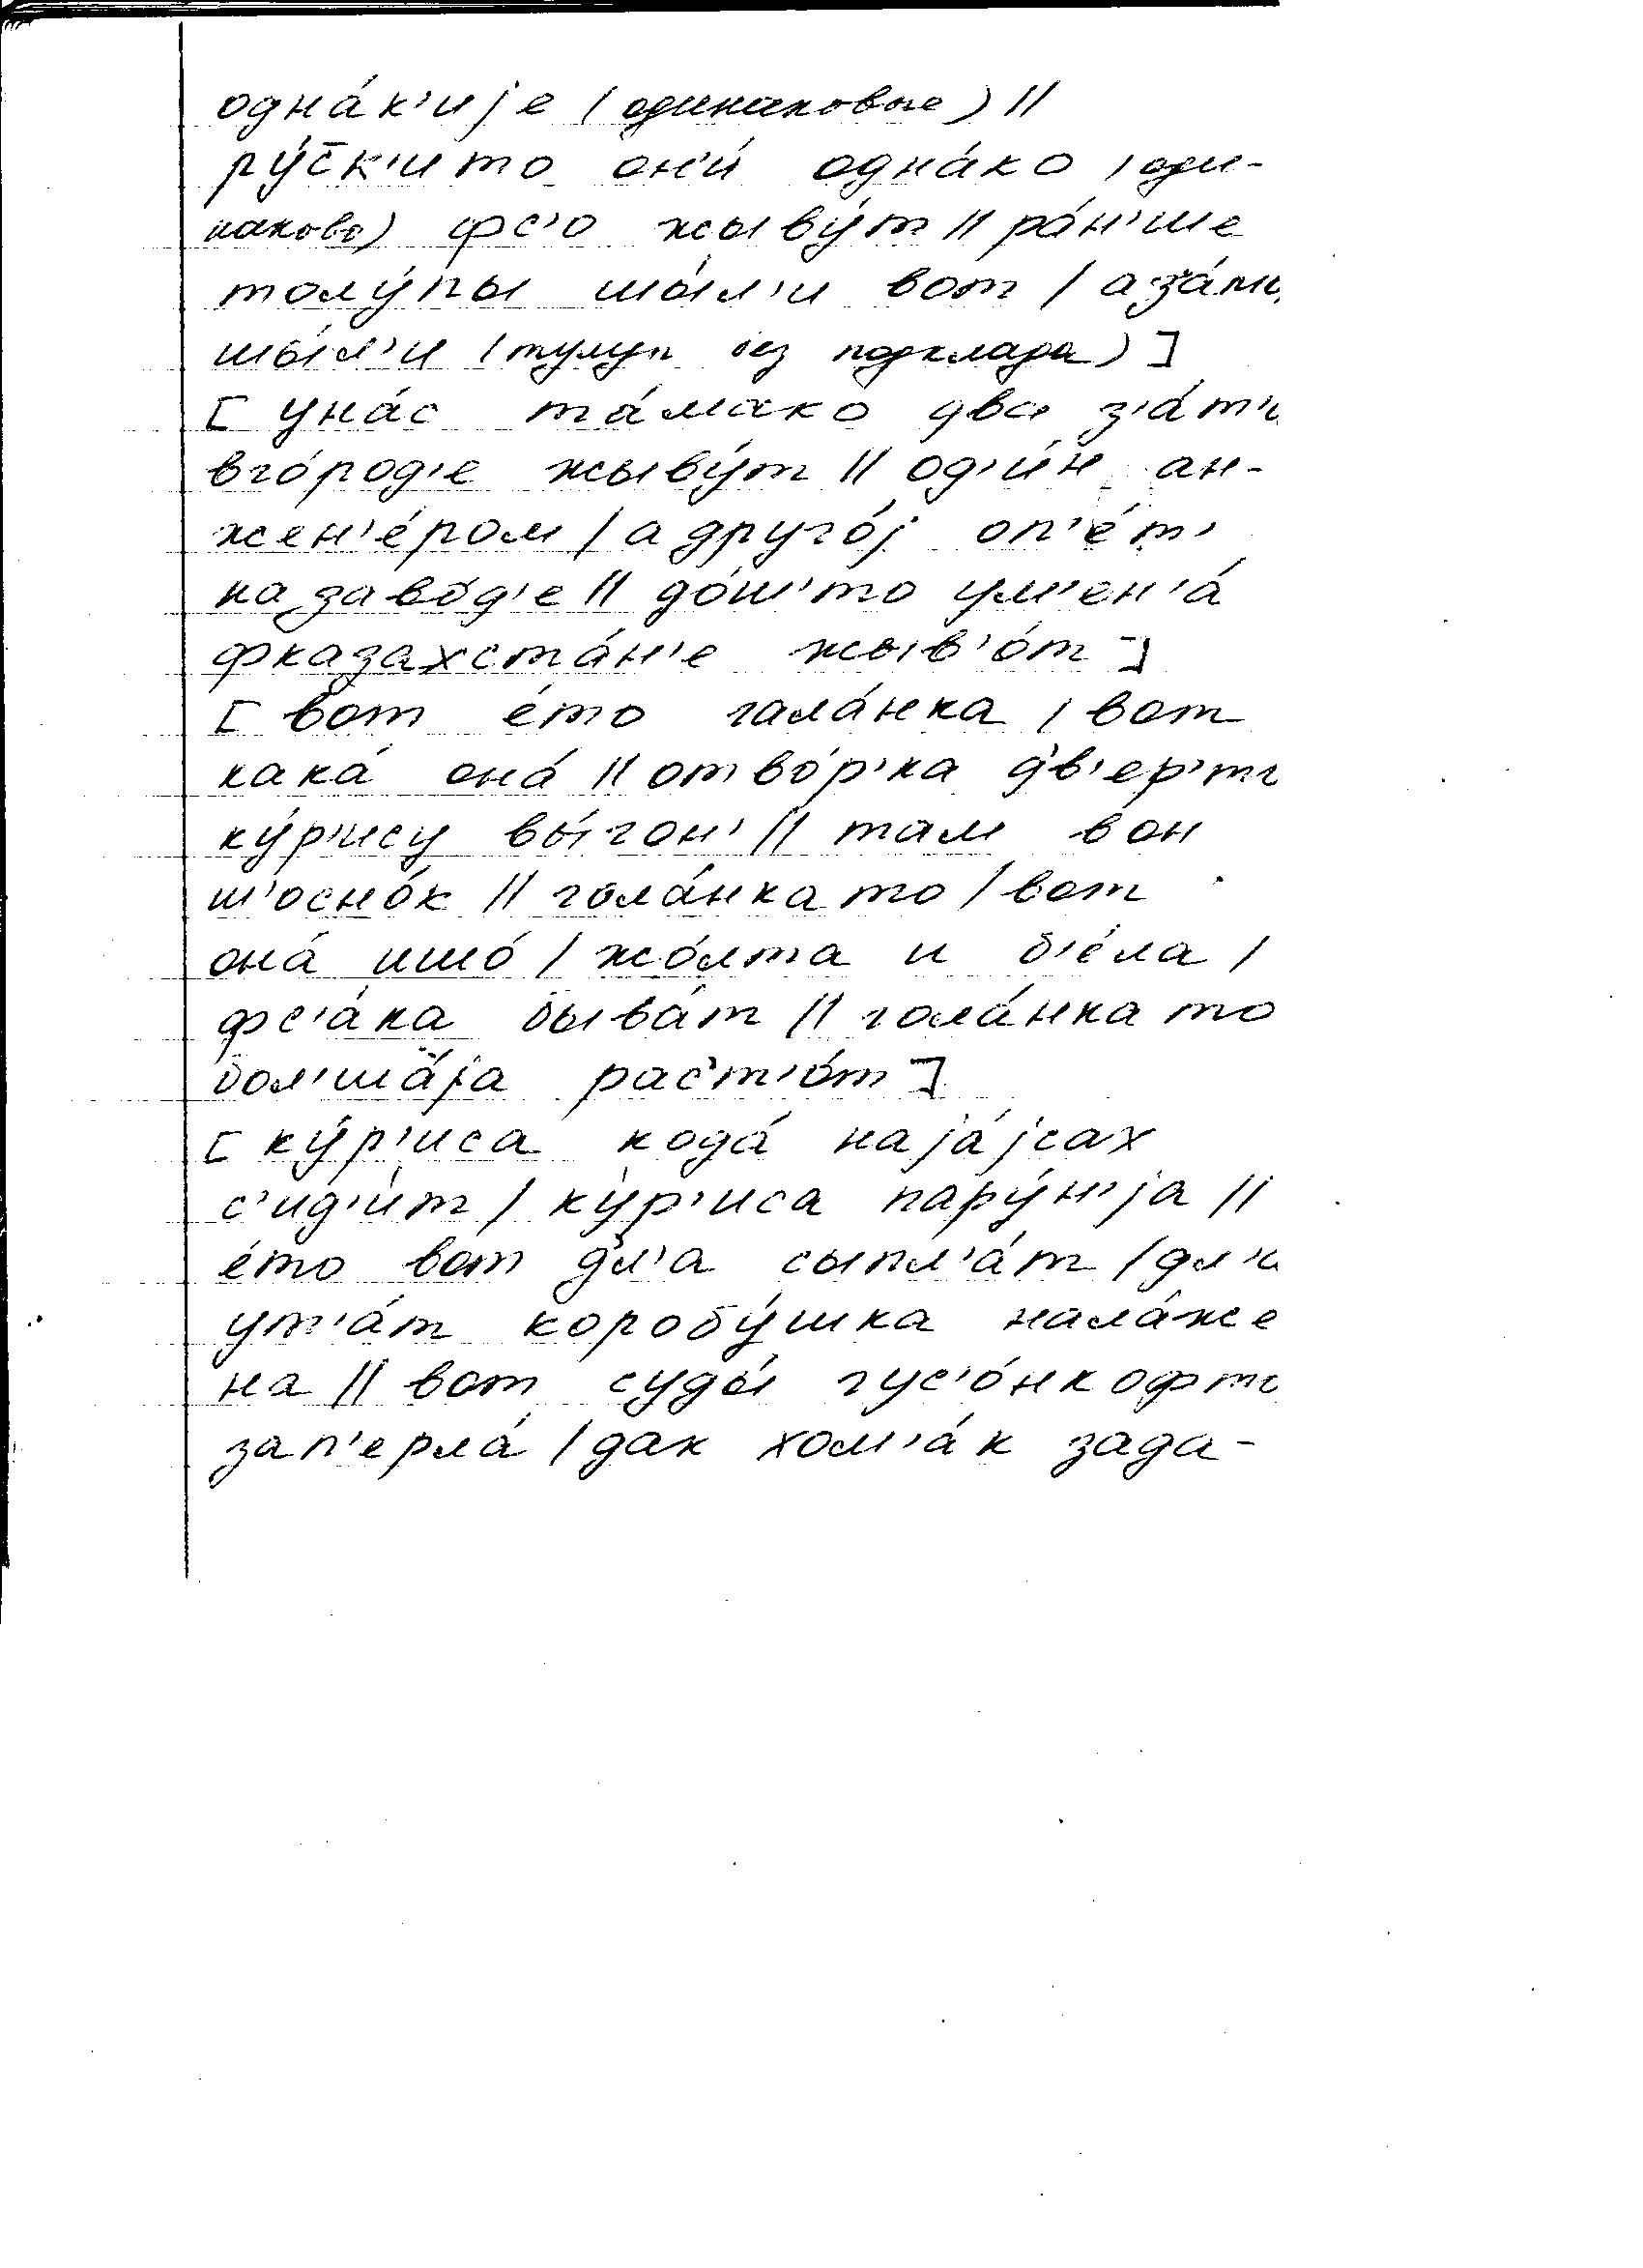 одна́к'иjе (одинаковые) //
ру́с̄к'ито он'и́ одна́ко (оди-
наково) фс'о жыву́т // ра́н'ше
толу́пы шы́л'и вот / а з'а́мы
шы́л'и (тулуп без подклада) ]
[ уна́с та́мако два з'а́т'и
вго́род'е жыву́т // од'и́н ан-
жен'е́ром / а друго́j оп'е́т'
на заво́д'е // до́ш'то ум'ен'а́
фказахста́н'е жыв'о́т ]
[ вот е́то гала́нка / вот
кака́ она́ // отво́р'ка дв'ер'то
ку́р'ису вы́гон' // там вон
ш'осно́к // гола́нка то / вот
она́ ишо́ / жо́лта и б'е́ла /
фс'а́ка быва́т // гола́нка то
бол'ша́jа раст'о́т ]
[ ку́р'иса кода́ наjа́jсах
с'ид'и́т / ку́р'иса пару́н'jа //
е́то вот дл'а сыпл'а́т / дл'а
ут'а́т коробу́шка нала́же
на // вот суды́ гус'о́нкофто
зап'ерла́ / дак хом'а́к зада-